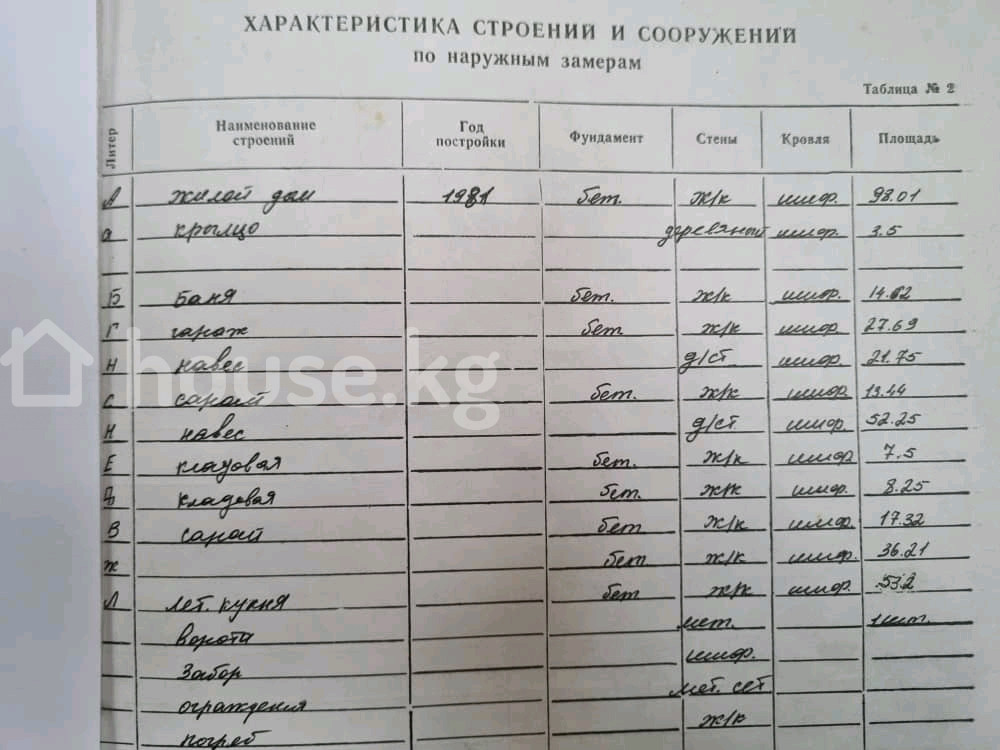 ХАРАКТЕРИСТИКА СТРОЕНИЙ И СООРУЖЕНИЙ
по наружным замерам
Таблица № 2
Литер Наименование строений Год постройки Фундамент Стены Кровля Площадь
А жилой дом 1981 бет. ж/к шиф. 98.01
а крыльцо деревяный шиф. 3.5
Б баня бет. ж/к шиф. 14.62
Г гараж бет ж/к шиф. 27.69
Н навес д/ст шиф. 21.75
С сарай бет. ж/к шиф. 13.44
Н навес д/ст шиф. 52.25
Е кладовая бет. ж/к шиф 7.5
Д кладовая бет. ж/к шиф. 8.25
В сарай бет ж/к шиф. 17.32
Ж бет ж/к шиф. 36.21
Л лет. кухня бет ж/к шиф. 53.2
ворота мет. 1 шт.
Забор шиф.
ограждения мет. сет
погреб ж/к
house.kg